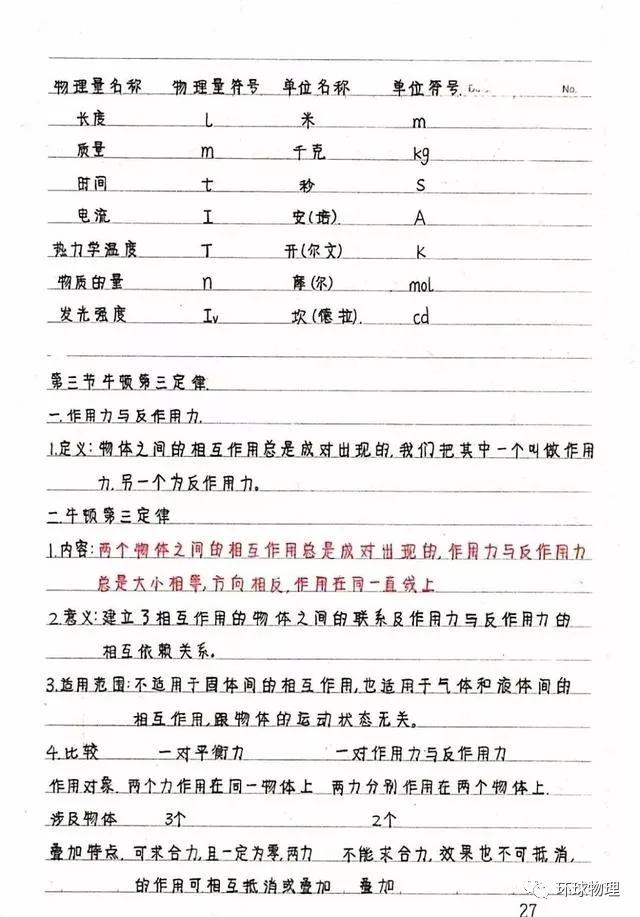 物理量名称 物理量符号 单位名称 单位符号 No.
长度 l 米 m
质量 m 千克 kg
时间 t 秒 S
电流 I 安(培). A
热力学温度 T 开(尔文) K
物质的量 n 摩(尔) mol
发光强度 Iv 坎(德拉). cd
第三节牛顿第三定律.
一.作用力与反作用力.
1.定义:物体之间的相互作用总是成对出现的,我们把其中一个叫做作用
力,另一个为反作用力。
二.牛顿第三定律
1.内容:两个物体之间的相互作用总是成对出现的,作用力与反作用力
总是大小相等,方向相反,作用在同一直线上
2.意义:建立了相互作用的物体之间的联系及作用力与反作用力的
相互依赖关系。
3.适用范围:不适用于固体间的相互作用,也适用于气体和液体间的
相互作用,跟物体的运动状态无关。
4.比较 一对平衡力 一对作用力与反作用力
作用对象. 两个力作用在同一物体上 两力分别作用在两个物体上.
涉及物体 3个 2个
叠加特点. 可求合力,且一定为零,两力 不能求合力,效果也不可抵消,
的作用可相互抵消或叠加 叠加
环球物理
27